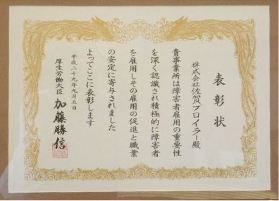 表彰状
株式会社佐賀ブロイラー殿
貴事業所は障害者雇用の重要性
を深く認識され積極的に障害者
を雇用しその雇用の促進と職業
の安定に寄与されました
よってここに表彰します
平成二十九年九月五日
厚生労働大臣
加藤勝信